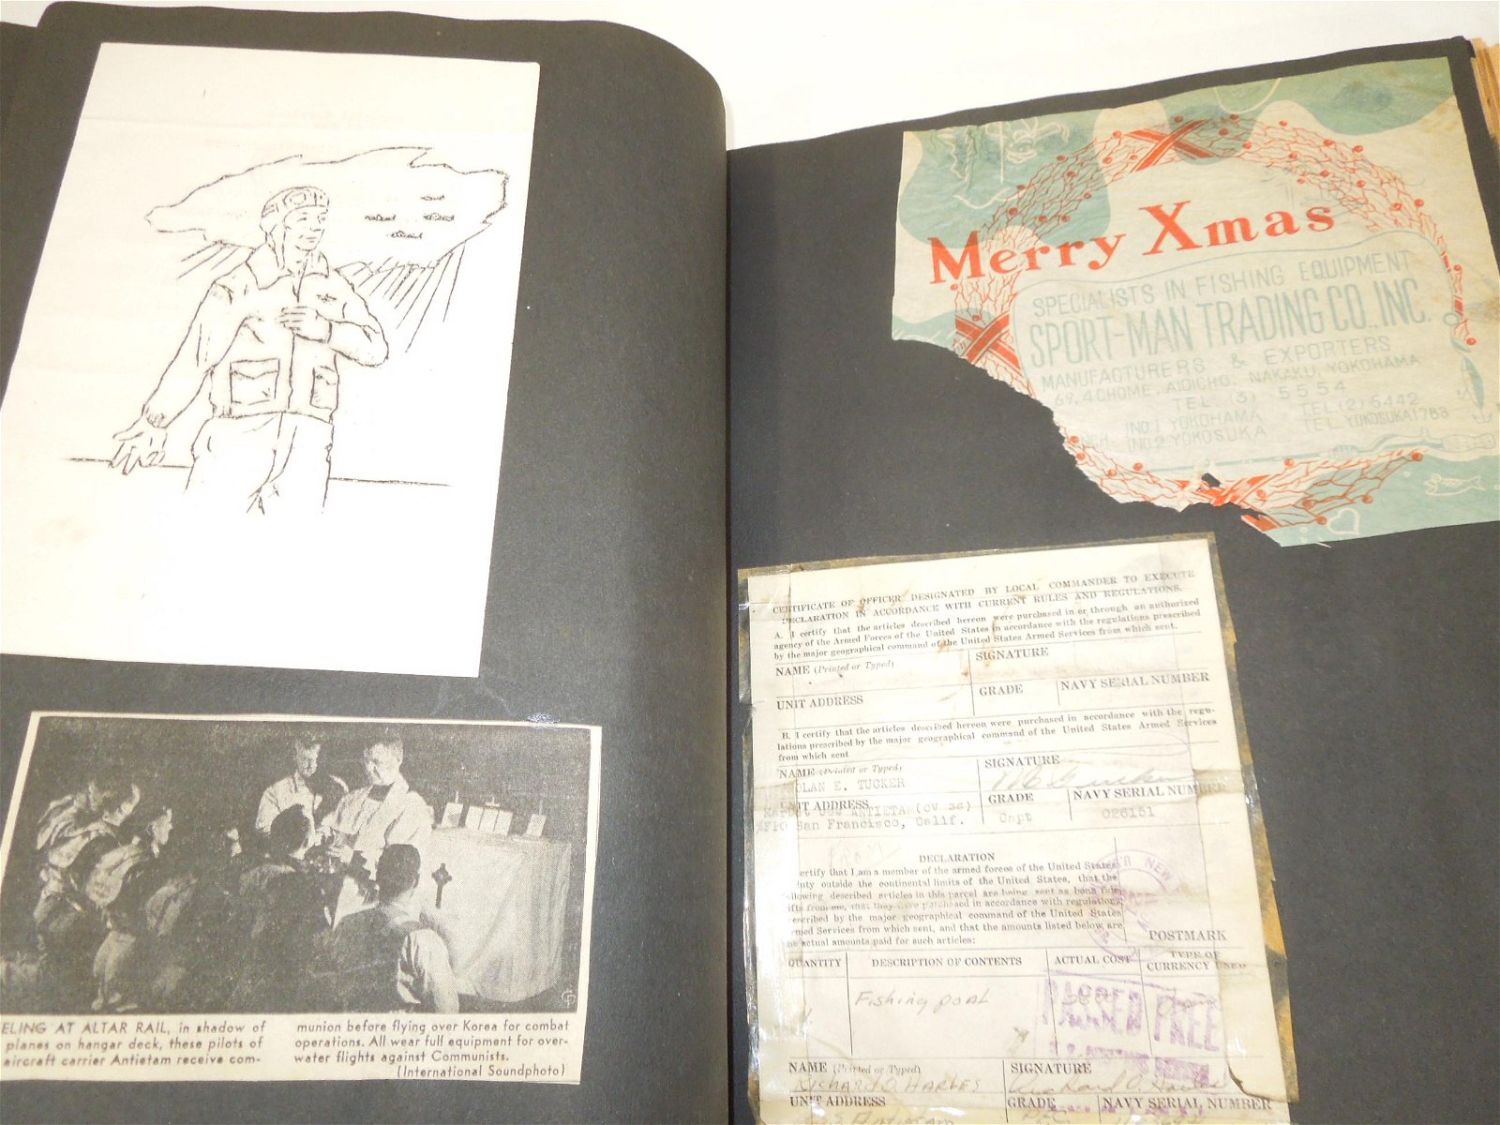 ELING AT ALTAR RAIL, in shadow of
planes on hangar deck, these pilots of
aircraft carrier Antietam receive com-
munion before flying over Korea for combat
operations. All wear full equipment for over-
water flights against Communists.
(International Soundphoto)
Merry Xmas
SPECIALISTS IN FISHING EQUIPMENT
SPORT-MAN TRADING CO., INC.
MANUFACTURERS & EXPORTERS
69, 4 CHOME, AIOICHO, NAKAKU, YOKOHAMA
TEL. (3) 5554
NO.1 YOKOHAMA TEL (2) 6442
NO.2 YOKOSUKA TEL YOKOSUKA 1763
CERTIFICATE OF OFFICER DESIGNATED BY LOCAL COMMANDER TO EXECUTE
DECLARATION IN ACCORDANCE WITH CURRENT RULES AND REGULATIONS.
A. I certify that the articles described hereon were purchased in or through an authorized
agency of the Armed Forces of the United States in accordance with the regulations prescribed
by the major geographical command of the United States Armed Services from which sent.
NAME (Printed or Typed) SIGNATURE
UNIT ADDRESS GRADE NAVY SERIAL NUMBER
B. I certify that the articles described hereon were purchased in accordance with the regu-
lations prescribed by the major geographical command of the United States Armed Services
from which sent
NAME (Printed or Typed) SIGNATURE
OLAN E. TUCKER
UNIT ADDRESS GRADE NAVY SERIAL NUMBER
USS ANTIETAM (CV 36) Capt 026151
FPO San Francisco, Calif.
DECLARATION
ertify that I am a member of the armed forces of the United States
uty outside the continental limits of the United States, that the
llowing described articles in this parcel are being sent as bona fide
ifts from me, that they were purchased in accordance with regulations
escribed by the major geographical command of the United States
rmed Services from which sent, and that the amounts listed below are
he actual amounts paid for such articles:
NEW
POSTMARK
QUANTITY DESCRIPTION OF CONTENTS ACTUAL COST TYPE OF CURRENCY USED
Fishing poal
PASSED FREE
NAME (Printed or Typed) SIGNATURE
RICHARD O. HARLES
UNIT ADDRESS GRADE NAVY SERIAL NUMBER
Antietam